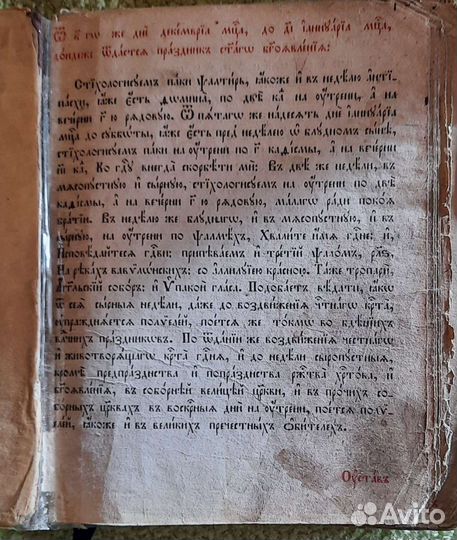 Ѿ к҃ ѡⷮ же дні́й декемврі́а мⷭ҇ца, до д҃і і҆аннꙋа́рїа мⷭ҇ца,
до́ндеже ѿда́стсѧ пра́здникъ ст҃а́гѡ бг҃оѧвле́нїѧ:
Стїхоло́гꙋемъ па́ки ѱалти́рь, ꙗ҆́коже и҆ въ недѣ́лю а҆нті-
па́схи, ꙗ҆́же є҆́сть ѳѡмина̀, по двѣ̀ каⷴ҇ на оу҆́трени, а҆ на
вече́рни г҃ю рѧдовꙋ́ю. Ѿ пѧ́тагѡ же на́десѧть днѐ і҆аннꙋа́рїа
мⷭ҇ца до сꙋббѡ́ты, ꙗ҆́же є҆́сть пред̾ недѣ́лею ѡ҆ блꙋ́дномъ сы́нѣ,
стїхоло́гꙋемъ па́ки на оу҆́трени по г҃ каѳі́смы, а҆ на вече́рни
и҆́ї каⷴ҇, Ко гдⷭ҇ꙋ внегда̀ скорбѣ́ти мѝ: Въ двѣ́ же недѣ́ли, въ
мѧсопꙋ́стнꙋю и҆ сы́рнꙋю, стїхоло́гꙋемъ на оу҆́трени по двѣ̀
каѳі́смы, а҆ на вече́рни г҃ю рѧдовꙋ́ю, ма́лагѡ ра́ди поко́ѧ
бра́тїи. Въ недѣ́лю же блꙋ́днагѡ, и҆ въ мѧсопꙋ́стнꙋю, и҆ въ
сы́рнꙋю, на оу҆́трени по ѱалмѣ́хъ, Хвали́те и҆́мѧ гдⷭ҇не: и҆,
И҆сповѣ́дайтесѧ гдⷭ҇ви: припѣва́емъ и҆ тре́тїй ѱало́мъ, рл҃ѕ,
На рѣка́хъ вавѷлѡ́нскихъ: со а҆ллилꙋ́їею кра́сною. Та́же тропарѝ,
А҆́гг҃льскїй собо́ръ: и҆ Ѵ҆пако́й гла́са. Подоба́етъ вѣ́дати, ꙗ҆́кѡ
ѿ сеѧ̀ сы́рныѧ недѣ́ли, да́же до воздви́женїѧ чтⷭ҇на́гѡ крⷭ҇та̀,
оу҆пражнѧ́етсѧ полѷеле́й, пое́тсѧ же то́кмѡ во бдѣ́нныхъ
влⷣчнихъ пра́здникѡвъ. По ѿда́нїи же воздви́женїѧ честна́гѡ
и҆ животворѧ́щагѡ крⷭ҇та̀ гдⷭ҇нѧ, и҆ до недѣ́ли сыропꙋ́стныѧ,
кромѣ̀ предпра́зднства и҆ попра́зднства ржⷭ҇тва̀ хрⷭ҇то́ва, и҆
бг҃оѧвле́нїѧ, въ собо́рнѣй вели́цѣй цр҃кви, и҆ въ про́чихъ со-
бо́рныхъ цр҃квахъ въ воскрⷭ҇ны дни̑ на оу҆́трени, пое́тсѧ полѷ-
еле́й, ꙗ҆́коже и҆ въ вели́кихъ пречⷭ҇тныхъ ѻ҆би́телехъ.
Оу҆ста́въ
Avito